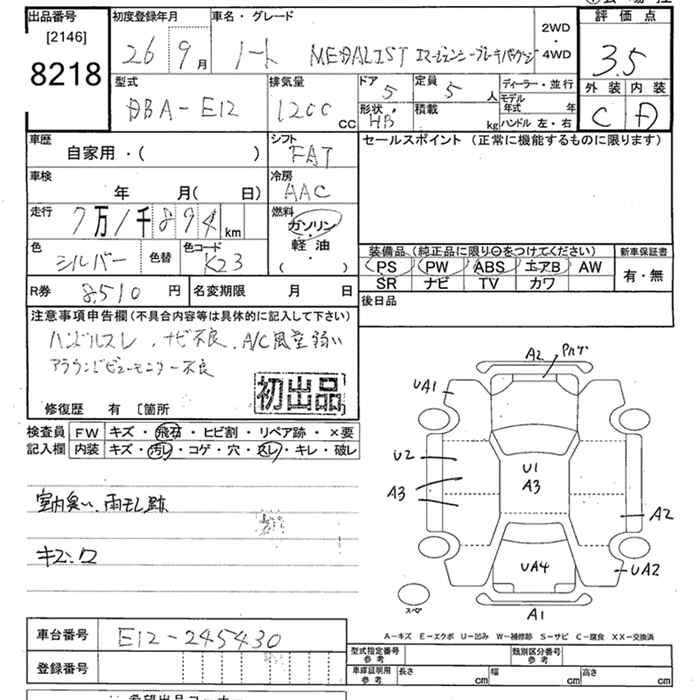 出品番号 初度登録年月 車名・グレード 2WD・4WD 評価点
[2146]
8218 26 9月 ノート MEDALIST エマージェンシーブレーキパッケージ 3.5
型式 排気量 ドア 定員 ディーラー・並行 外装 内装
DBA-E12 1200 cc 5 5人 モデル年式 年 C D
形状・HB 積載 kg ハンドル 左・右
車歴 シフト セールスポイント (正常に機能するものに限ります)
自家用・( ) FAT
車検 冷房
年 月( 日) AAC
走行 7万1千894km 燃料
ガソリン・軽油・( )
色 シルバー 色替 色コード K23
装備品(純正品に限り○をつけてください) 新車保証書
PS PW ABS エアB AW 有・無
SR ナビ TV カワ
R券 8,510円 名変期限 月 日 後日品
注意事項申告欄(不具合内容等は具体的に記入して下さい)
ハンドルスレ、ナビ不良、A/C風量弱い
アラウンドビューモニター不良
初出品
修復歴 有 [箇所 ]
検査員記入欄 FW キズ・飛石・ヒビ割・リペア跡・×要
内装 キズ・汚レ・コゲ・穴・スレ・キレ・破レ
室内臭い、雨モレ跡
A2
UA1
U2
U1
A3
A3
A2
UA4
UA2
スペ
A1
A-キズ E-エクボ U-凹み W-補修跡 S-サビ C-腐食 XX-交換済
車台番号 E12-245430
型式指定番号 参考 類別区分番号 参考
登録番号
車庫証明用 参考 長さ cm 幅 cm 高さ cm